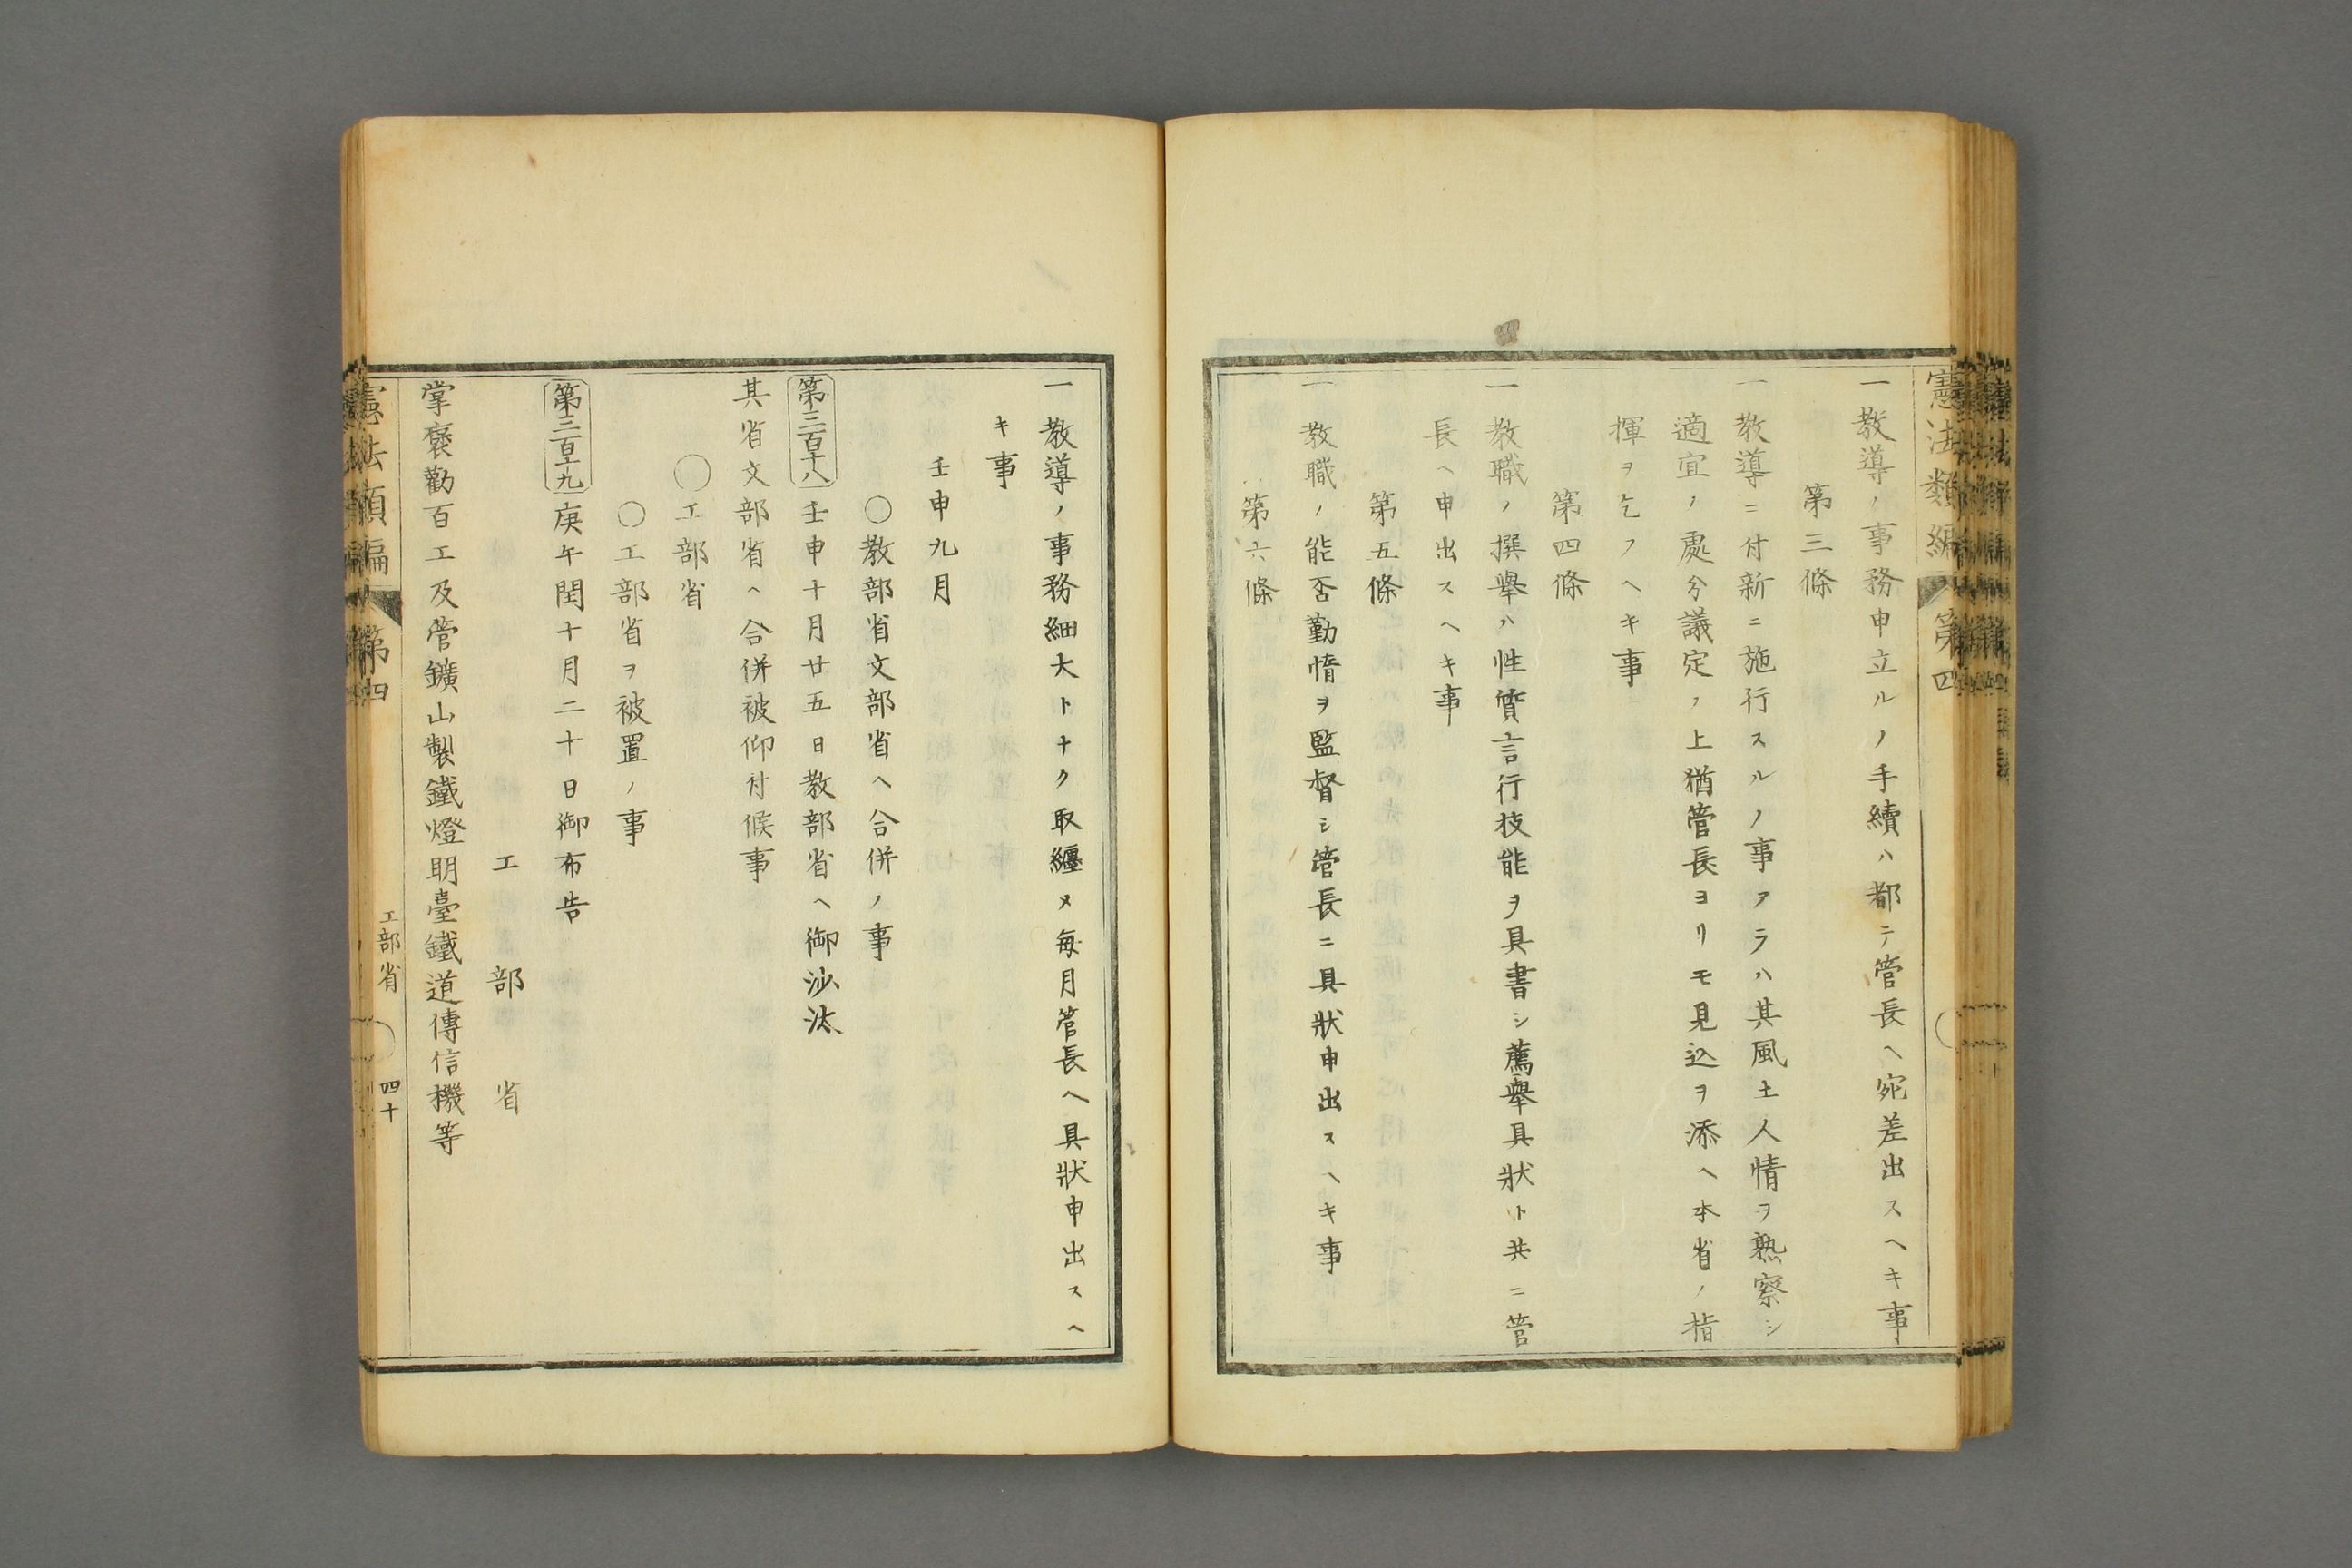 憲法類編 第四
一教導ノ事務申立ルノ手續ハ都テ管長ヘ宛差出スヘキ事
第三條
一教導ニ付新ニ施行スルノ事アラハ其風土人情ヲ熟察シ
適宜ノ處分議定ノ上猶管長ヨリモ見込ヲ添ヘ本省ノ指
揮ヲ乞フヘキ事
第四條
一教職ノ撰擧ハ性質言行技能ヲ具書シ薦擧具狀ト共ニ管
長ヘ申出スヘキ事
第五條
一教職ノ能否勤惰ヲ監督シ管長ニ具狀申出スヘキ事
第六條
一教導ノ事務細大トナク取纏メ每月管長ヘ具狀申出スヘ
キ事
壬申九月
〇教部省文部省ヘ合併ノ事
第三百十八 壬申十月廿五日教部省ヘ御沙汰
其省文部省ヘ合併被仰付候事
〇工部省
〇工部省ヲ被置ノ事
第三百十九 庚午閏十月二十日御布告
工部省
掌褒勸百工及管鑛山製鐵燈明臺鐵道傳信機等
憲法類編 第四 工部省 四十